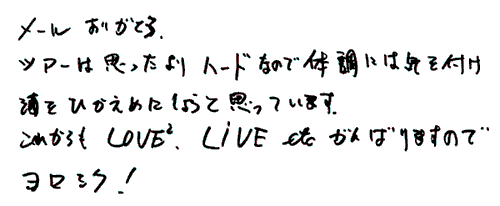 メール ありがとう.
ツアーは思ったよりハードなので体調には気を付け
酒をひかえめにしようと思っています.
これからも LOVE², LIVE etc がんばりますので
ヨロシク!